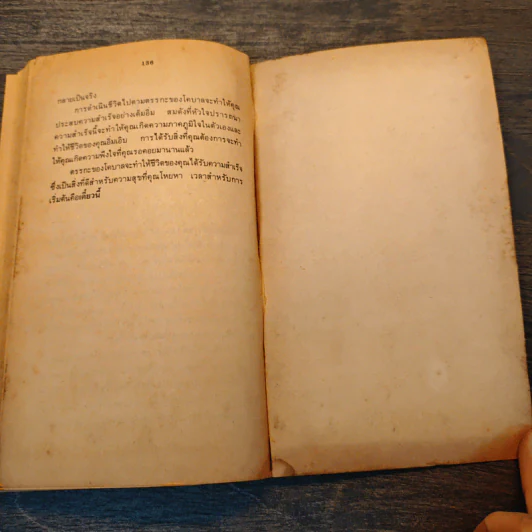 198
กลายเป็นจริง
การดำเนินชีวิตไปตามตรรกะของโคบาลจะทำให้คุณ
ประสบความสำเร็จอย่างเต็มอิ่ม สมดังที่หัวใจปรารถนา
ความสำเร็จนี้จะทำให้คุณเกิดความภาคภูมิใจในตัวเองและ
ทำให้ชีวิตของคุณอิ่มเอิบ การได้รับสิ่งที่คุณต้องการจะทำ
ให้คุณเกิดความพึงใจที่คุณรอคอยมานานแล้ว
ตรรกะของโคบาลจะทำให้ชีวิตของคุณได้รับความสำเร็จ
ซึ่งเป็นสิ่งที่ดีสำหรับความสุขที่คุณโหยหา เวลาสำหรับการ
เริ่มต้นคือเดี๋ยวนี้